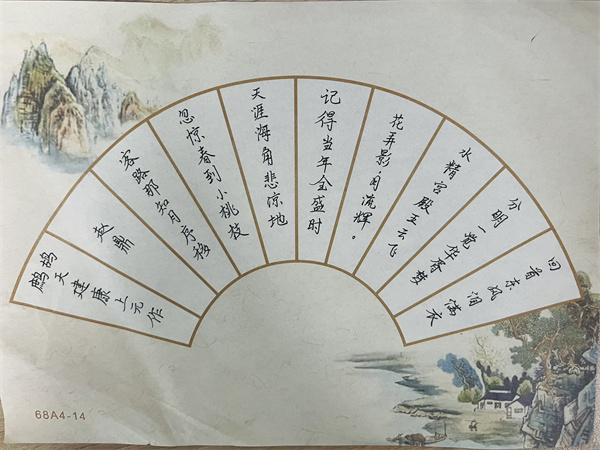 鹧鸪天建康上元作
赵鼎
客路那知月序移
忽惊春到小桃枝
天涯海角悲凉地
记得当年全盛时
花弄影,月流辉。
水精宫殿五云飞
分明一觉华胥梦
回首东风泪满衣
68A4-14